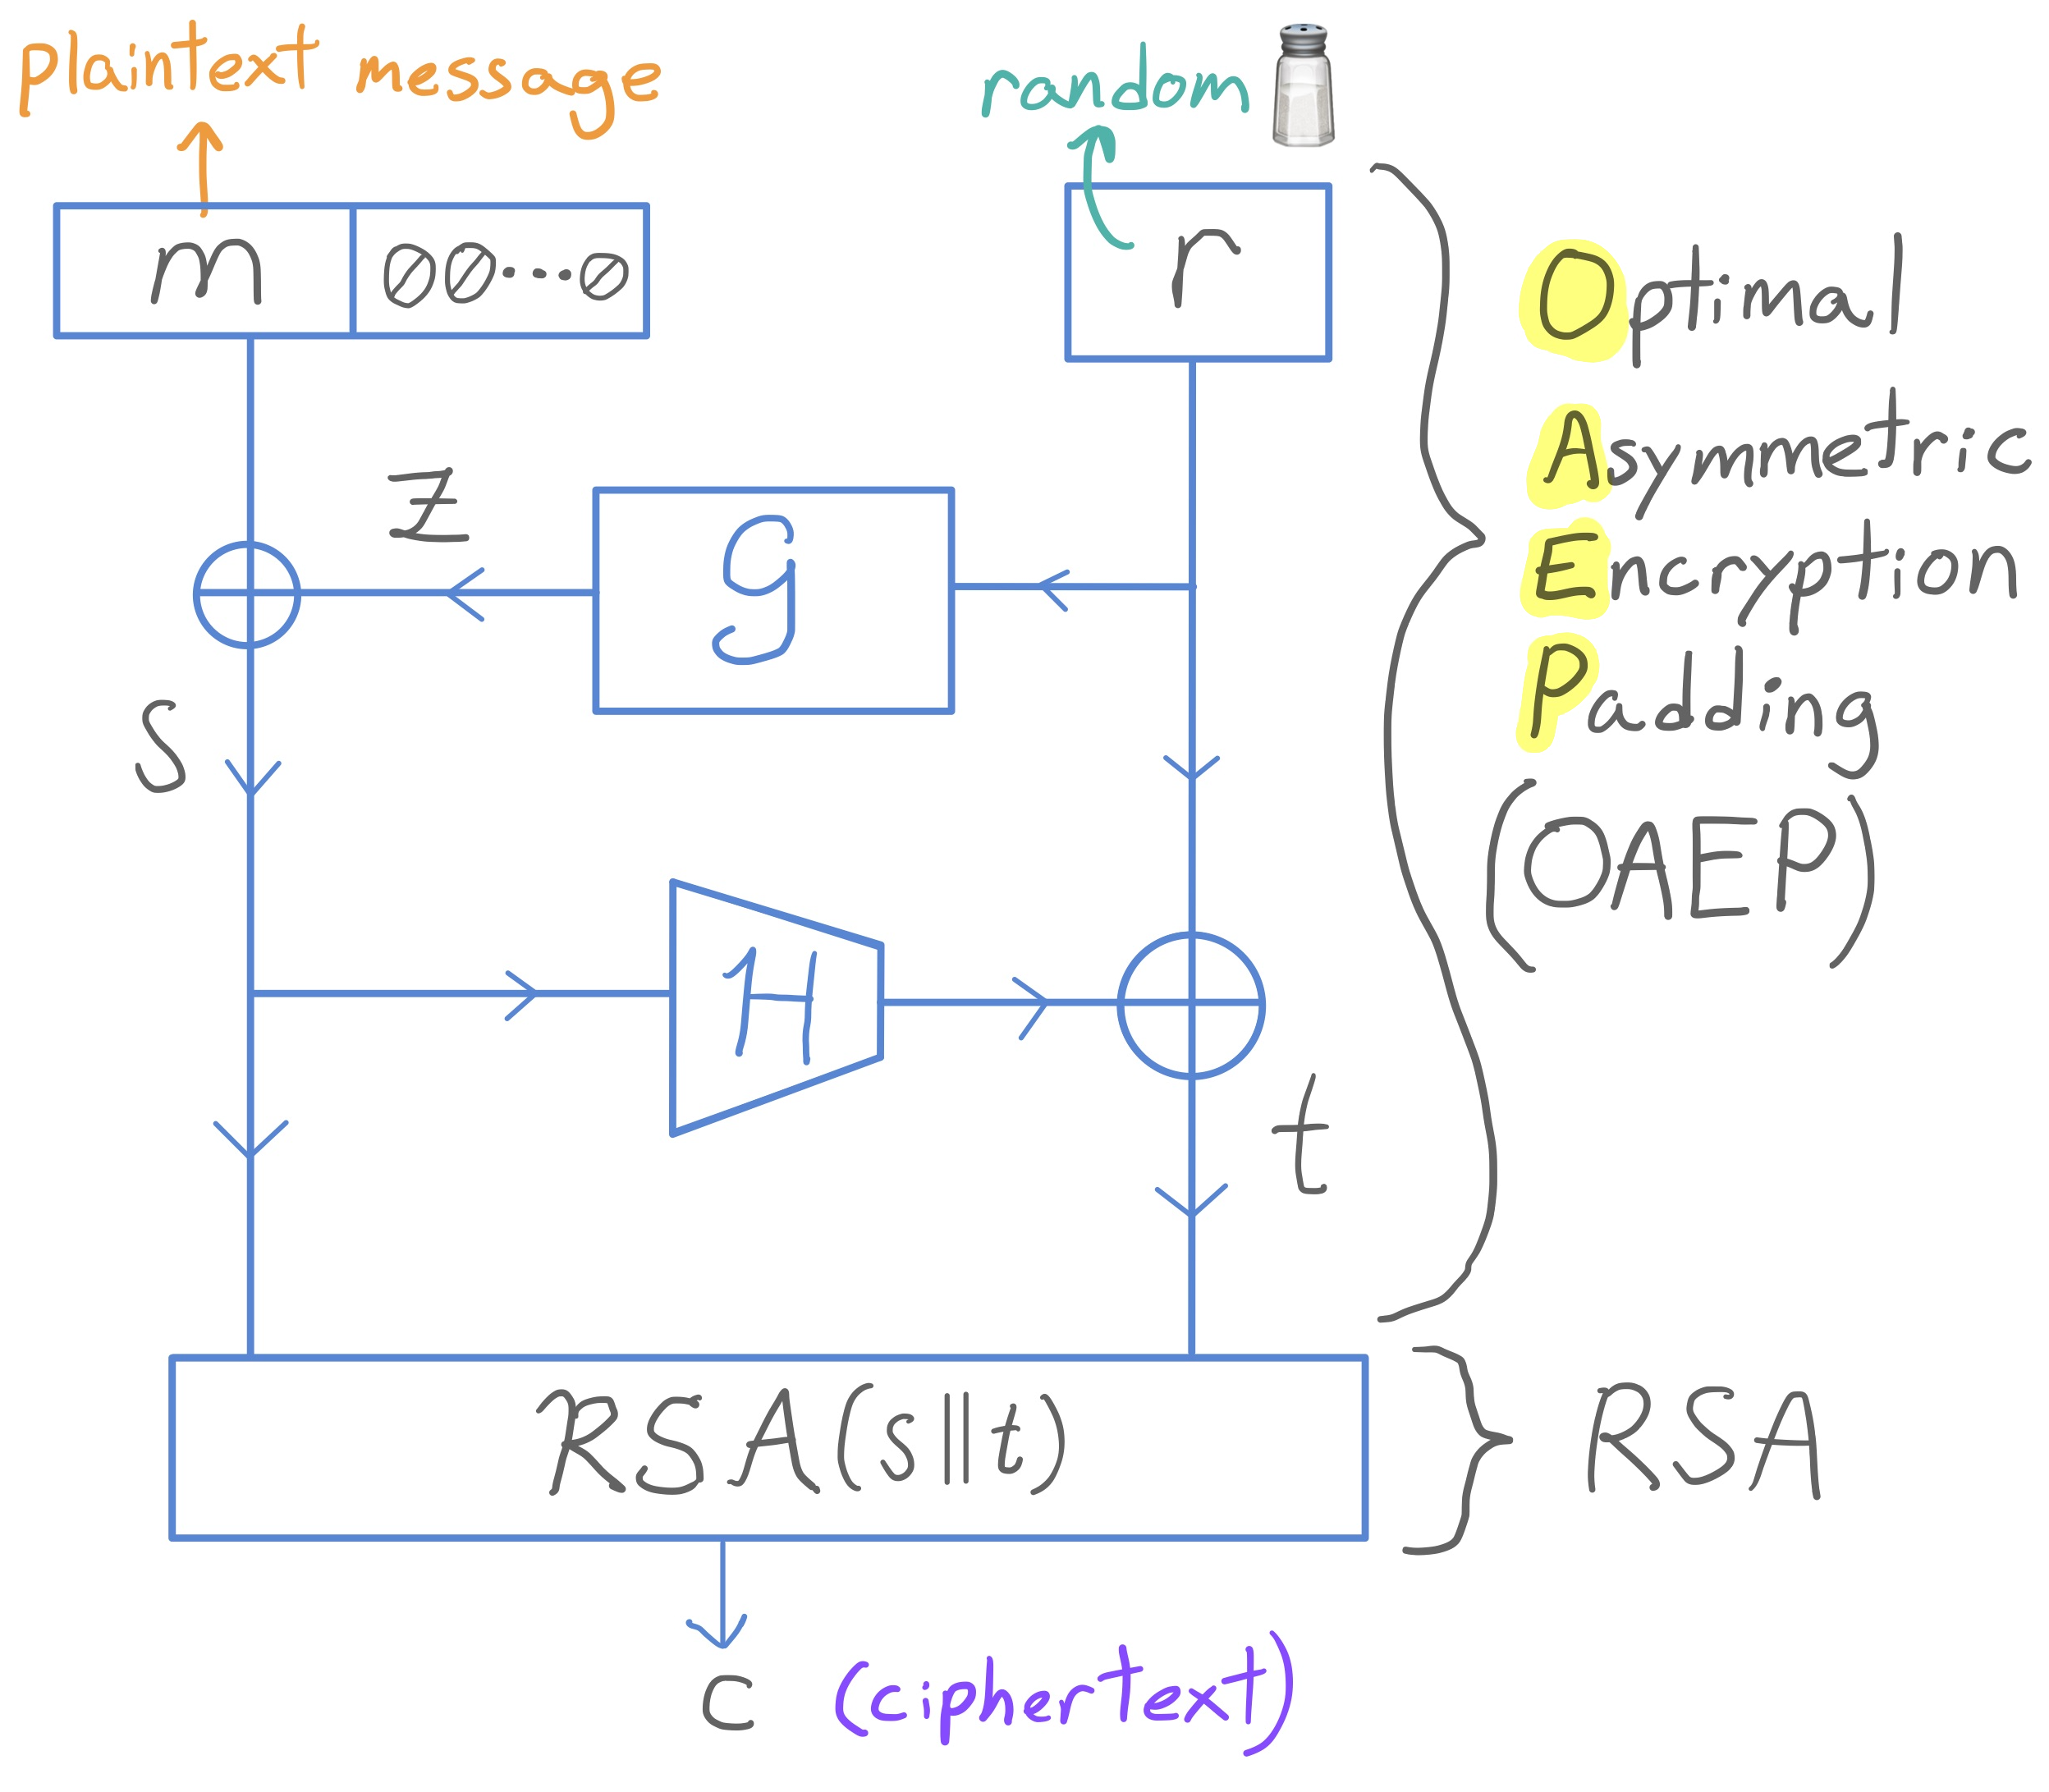 plaintext message
random
m
00...0
r
Optimal
Asymmetric
Encryption
Padding
(OAEP)
z
G
s
H
t
RSA(s||t)
RSA
c
(ciphertext)